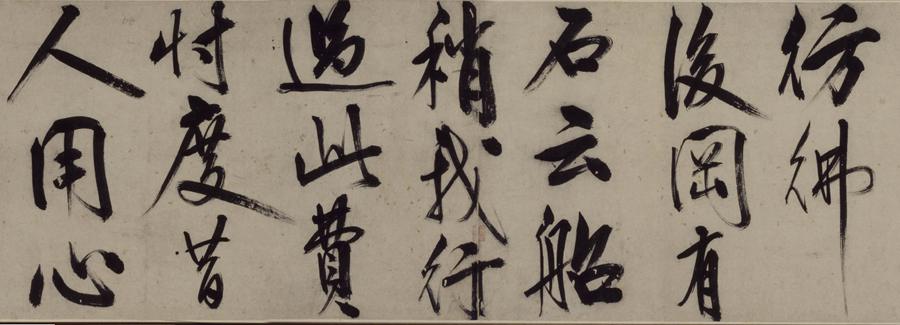 彷彿
後岡有
石云船
稍我行
過此費
忖度昔
人用心